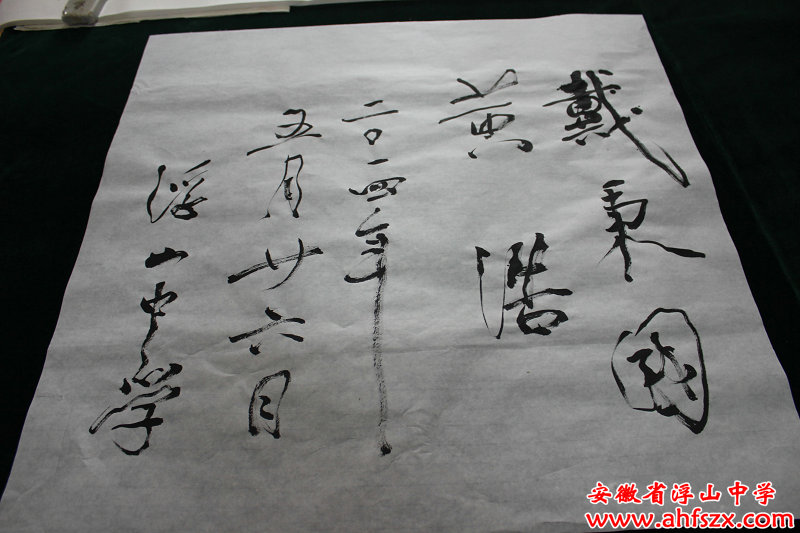 戴秉國
黄浩
二〇一四年
五月廿六日
浮山中学
安徽省浮山中学
www.ahfszx.com